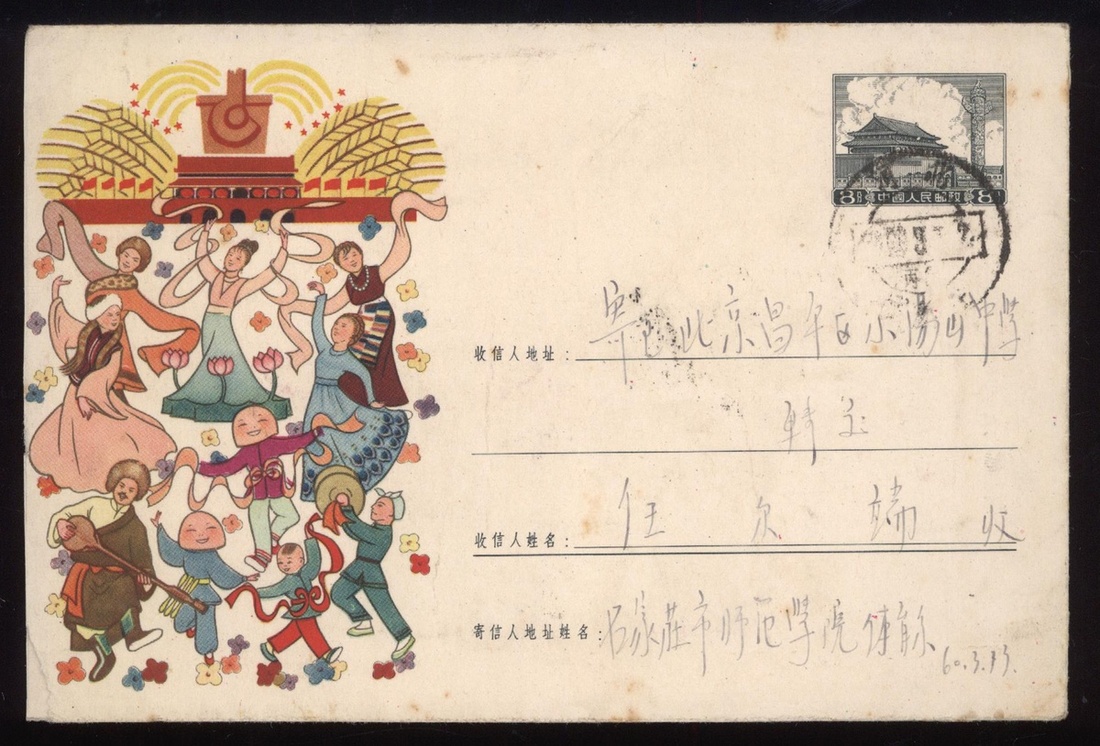 8分 中国人民邮政 8分
收信人地址：寄 北京昌平区小汤山中学
收信人姓名：任 端 收
寄信人地址姓名：石家莊市师范學院体
60.3.13.